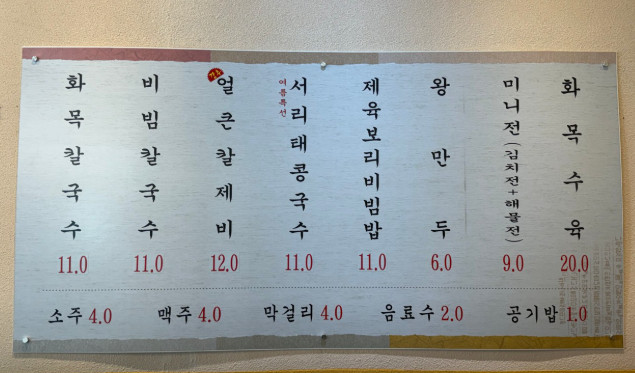 화목칼국수 11.0
비빔칼국수 11.0
얼큰칼제비 12.0
여름특선
서리태콩국수 11.0
제육보리비빔밥 11.0
왕만두 6.0
미니전(김치전+해물전) 9.0
화목수육 20.0
소주 4.0
맥주 4.0
막걸리 4.0
음료수 2.0
공기밥 1.0